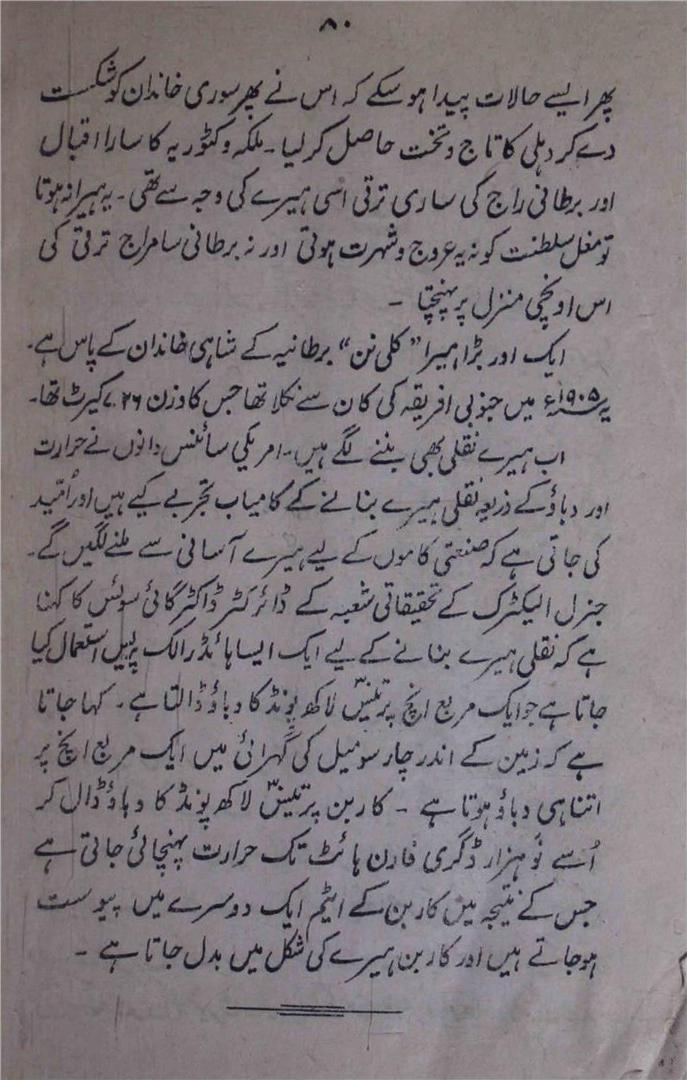 ۸۰
پھر ایسے حالات پیدا ہو سکے کہ اس نے پھر سوری خاندان کو شکست
دے کر دہلی کا تاج و تخت حاصل کر لیا ۔ ملکہ وکٹوریہ کا سارا اقبال
اور برطانی راج کی ساری ترقی اسی ہیرے کی وجہ سے تھی ۔ یہ ہیرا نہ ہوتا
تو مغل سلطنت کو نہ یہ عروج و شہرت ہوتی اور نہ برطانی سامراج ترقی کی
اس اونچی منزل پر پہنچتا ۔
ایک اور بڑا ہیرا “کلی نن” برطانیہ کے شاہی خاندان کے پاس ہے ۔
یہ ۱۹۰۵ء میں جنوبی افریقہ کی کان سے نکلا تھا جس کا وزن ۷۲۶ کیرٹ تھا ۔
اب ہیرے نقلی بھی بننے لگے ہیں ۔ امریکی سائنس دانوں نے حرارت
اور دباؤ کے ذریعہ نقلی ہیرے بنانے کے کامیاب تجربے کیے ہیں اور اُمّید
کی جاتی ہے کہ صنعتی کاموں کے لیے ہیرے آسانی سے ملنے لگیں گے ۔
جنرل الیکٹرک کے تحقیقاتی شعبہ کے ڈائرکٹر ڈاکٹر گائی سوئس کا کہنا
ہے کہ نقلی ہیرے بنانے کے لیے ایک ایسا ہائڈرالک پریس استعمال کیا
جاتا ہے جو ایک مربع انچ پر تیس لاکھ پونڈ کا دباؤ ڈالتا ہے ۔ کہا جاتا
ہے کہ زمین کے اندر چار سو میل کی گہرائی میں ایک مربع انچ پر
اتنا ہی دباؤ ہوتا ہے ۔ کاربن پر تیس لاکھ پونڈ کا دباؤ ڈال کر
اُسے نَو ہزار ڈگری فارن ہائٹ تک حرارت پہنچائی جاتی ہے
جس کے نتیجہ میں کاربن کے ایٹم ایک دوسرے میں پیوست
ہو جاتے ہیں اور کاربن ہیرے کی شکل میں بدل جاتا ہے ۔